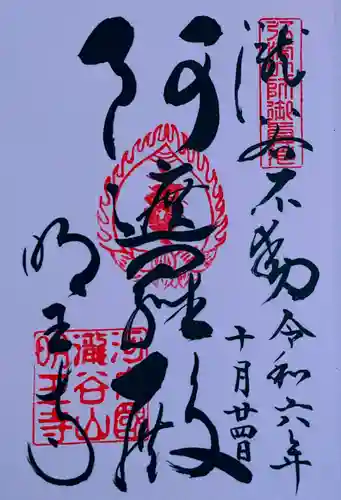 瀧谷不動
令和六年
十月廿四日
阿遮羅殿
明王寺
弘法大師御霊地
河内國
瀧谷山
明王寺